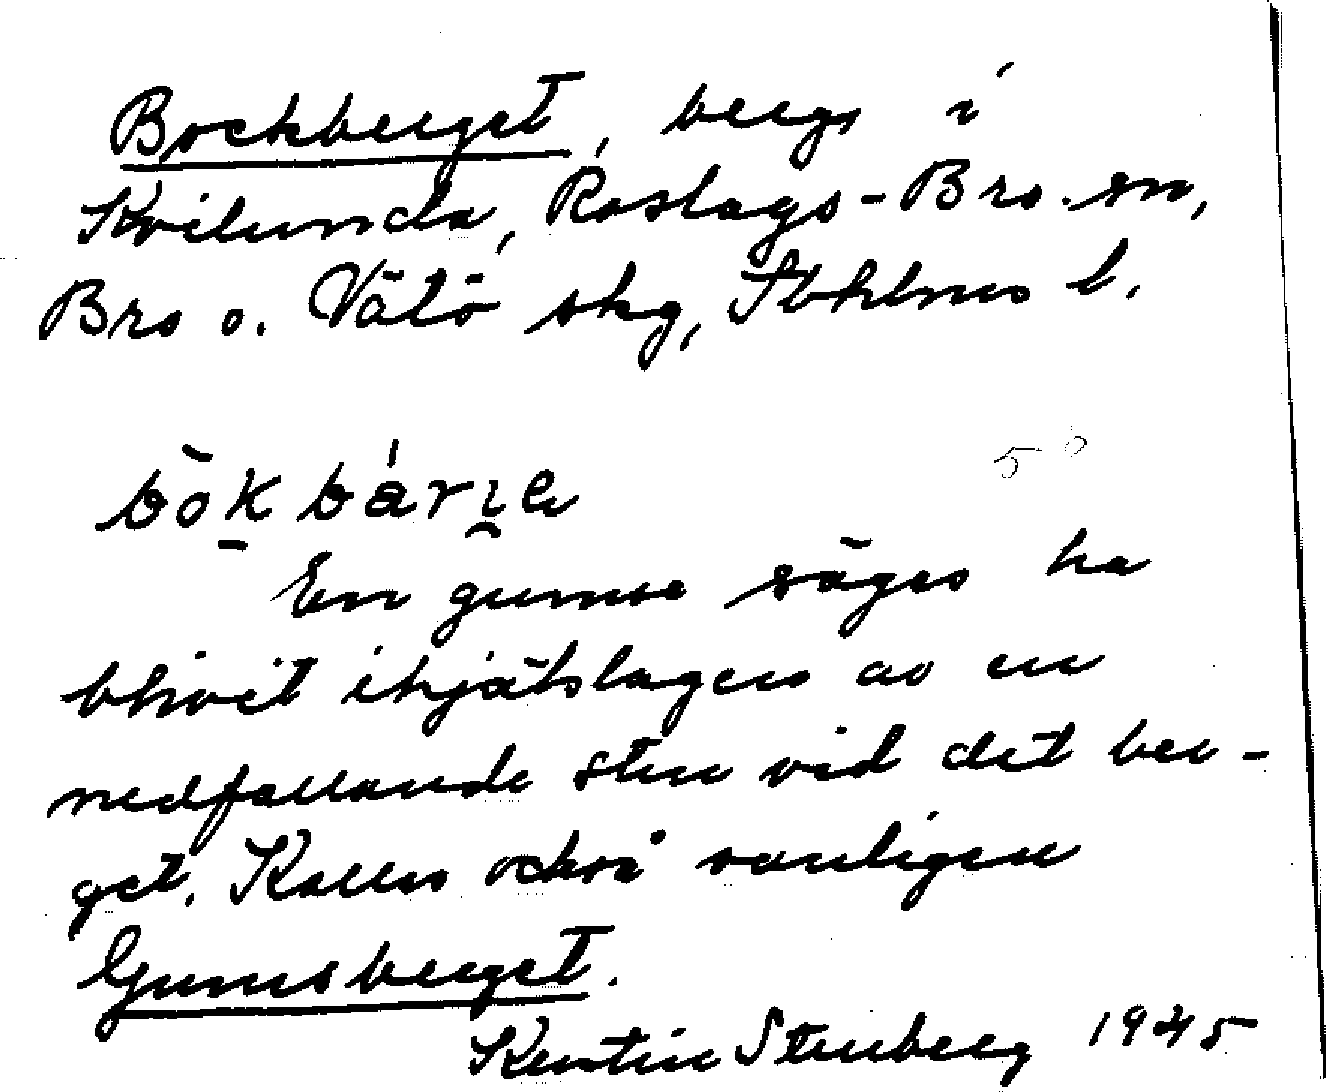 Bockberget, berg i
Kvilunda, Roslags-Bro sn,
Bro o. Vätö skg, Sthlms l.
5º
bòkbár̯e
En gumse säges ha
blivit ihjälslagen av en
nedfallande sten vid det ber-
get. Kallas också vanligen
Gumsberget.
Kerstin Stenberg 1945